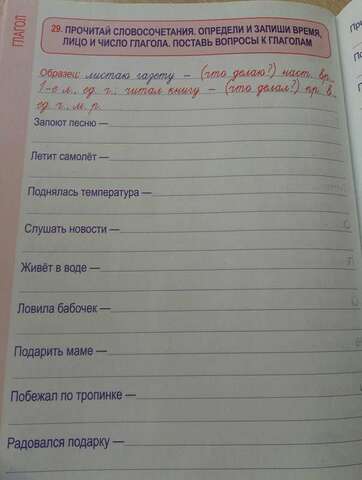 ГЛАГОЛ
29. ПРОЧИТАЙ СЛОВОСОЧЕТАНИЯ. ОПРЕДЕЛИ И ЗАПИШИ ВРЕМЯ,
ЛИЦО И ЧИСЛО ГЛАГОЛА. ПОСТАВЬ ВОПРОСЫ К ГЛАГОЛАМ
Образец: листаю газету – (что делаю?) наст. вр.,
1-е л., ед. ч.; читал книгу – (что делал?) пр. в.,
ед. ч., м. р.
Запоют песню —
Летит самолёт —
Поднялась температура —
Слушать новости —
Живёт в воде —
Ловила бабочек —
Подарить маме —
Побежал по тропинке —
Радовался подарку —